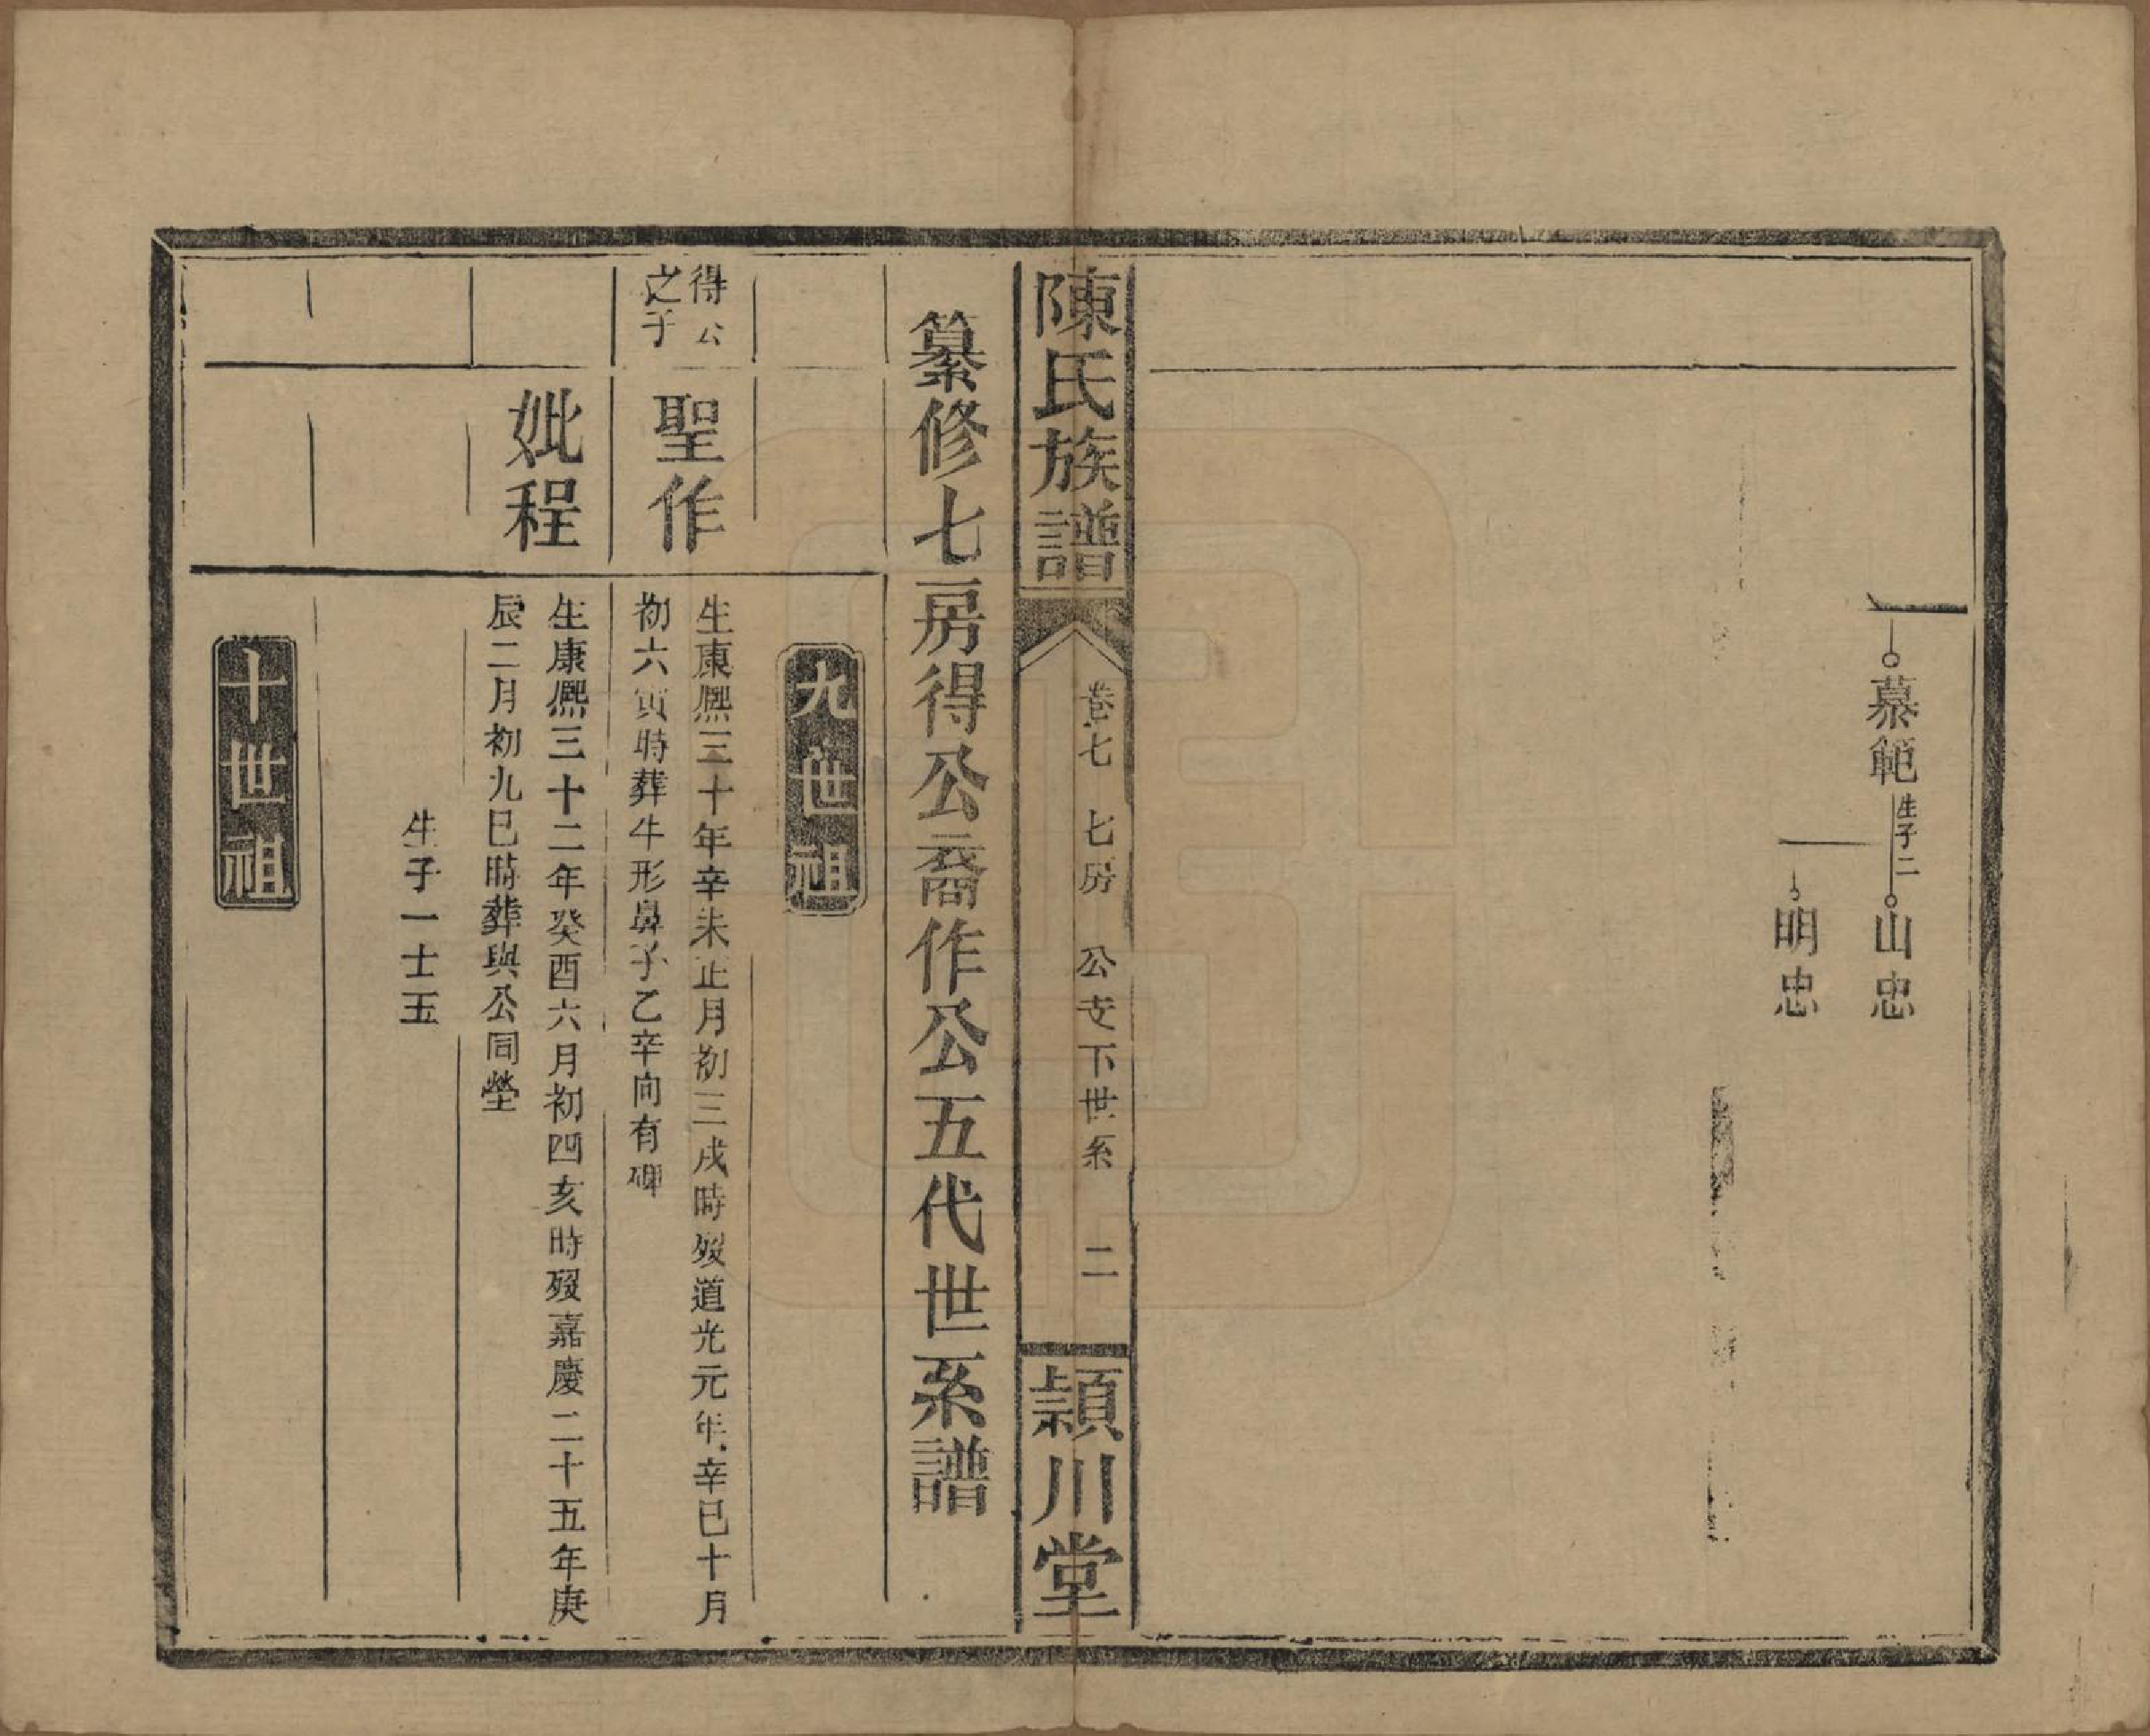 慕範
生子二
山忠
明忠
陳氏族譜
卷七 七房 公支下世系 二
潁川堂
纂修七房得公裔作公五代世系譜
九世祖
得公
之子
聖作
生康熈三十年辛未正月初三戌時歿道光元年辛巳十月
初六寅時葬牛形鼻子乙辛向有碑
妣程
生康熈三十二年癸酉六月初四亥時歿嘉慶二十五年庚
辰二月初九巳時葬與公同塋
生子一士五
十世祖